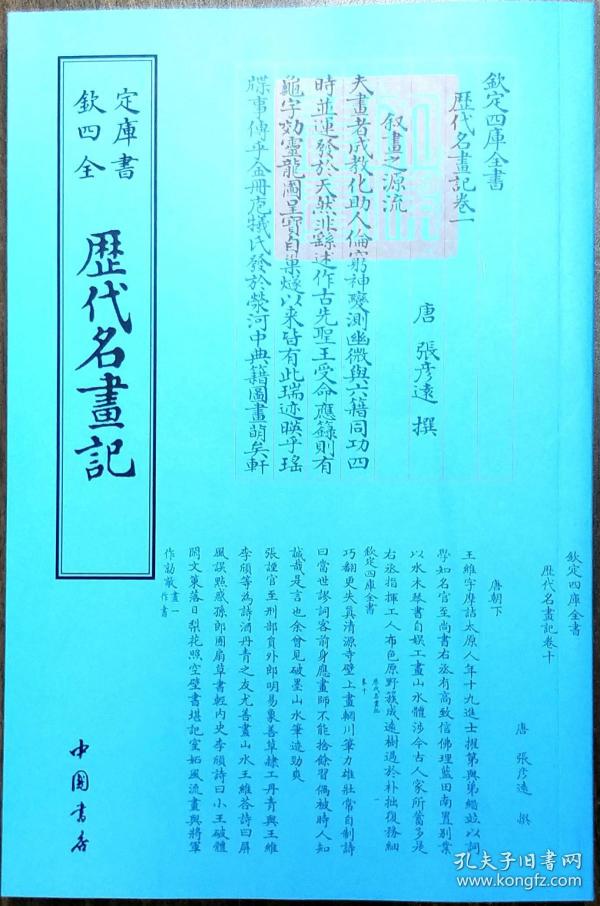 欽定四庫全書
歷代名畫記
中國書店
欽定四庫全書
歷代名畫記卷一
唐 張彥遠 撰
叙畫之源流
夫畫者成教化助人倫窮神變測幽微與六籍同功四
時並運發於天然非繇述作古先聖王受命應籙則有
龜字効靈龍圖呈寶自巢燧以来皆有此瑞迹暎乎瑤
牒事傳乎金冊庖犧氏發於滎河中典籍圖畫萌矣軒
欽定四庫全書
歷代名畫記卷十
唐 張彥遠 撰
唐朝下
王維字摩詰太原人年十九進士擢第與弟縉並以詞
學知名官至尚書右丞有高致信佛理藍田南置別業
以水木琴書自娱工畫山水體涉今古人家所蓄多是
右丞指揮工人布色原野簇成遠樹過於朴拙復務細
欽定四庫全書
歷代名畫記
卷十
巧翻更失真清源寺壁上畫輞川筆力雄壯常自制詩
曰當世謬詞客前身應畫師不能捨餘習偶被時人知
誠哉是言也余曾見破墨山水筆迹勁爽
張諲官至刑部員外郎明易象善草隸工丹青與王維
李頎等為詩酒丹青之友尤善畫山水王維荅詩曰屏
風誤點惑孫郎團扇草書輕內史李頎詩曰小王破體
閑文策落日梨花照空壁書堪記室妬風流畫與將軍
作勍敵畫一作書
孔夫子旧书网
www.kongfz.com